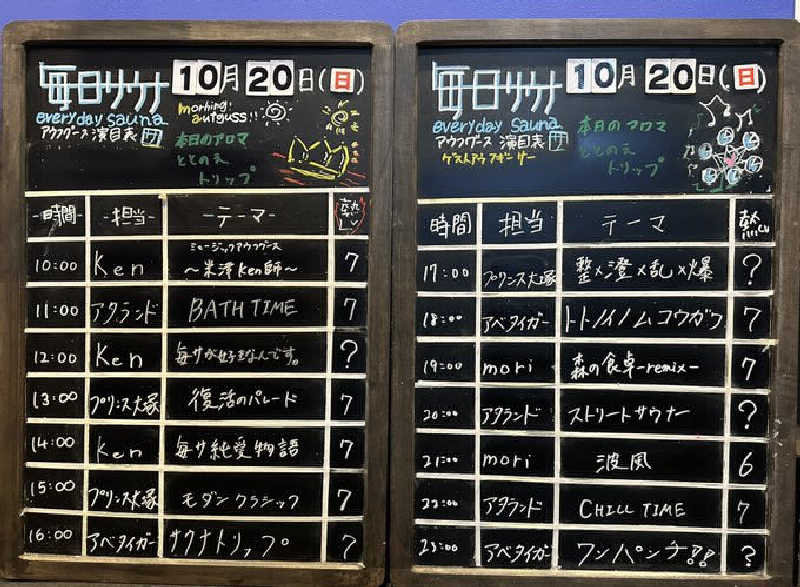 毎日サウナ 10月20日(日)
everyday sauna
morning autguss!!
アウフグース 演目表
本日のアロマ
ととのえ
トリップ
時間 担当 テーマ 熱
10:00 Ken ミュージックアウフグース ～米津Ken師～ 7
11:00 アタランド BATH TIME 7
12:00 Ken 毎サが好きなんです。 ?
13:00 プリンス大塚 復活のパレード 7
14:00 Ken 毎サ純愛物語 7
15:00 プリンス大塚 モダンクラシック 7
16:00 アベタイガー サウナトリップ 7
毎日サウナ 10月20日(日)
everyday sauna
アウフグース 演目表
ゲストアウフギーサー
本日のアロマ
ととのえ
トリップ
時間 担当 テーマ 熱
17:00 プリンス大塚 整×澄×乱×爆 ?
18:00 アベタイガー トトノイノムコウガワ 7
19:00 mori 森の食卓-remix- 7
20:00 アタランド ストリートサウナー ?
21:00 mori 波風 6
22:00 アタランド CHILL TIME 7
23:00 アベタイガー ワンパンチ?? ?